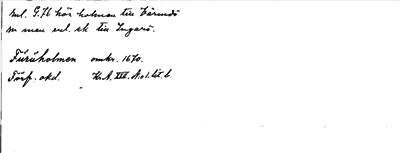 enl. G.76 hör holmen till Värmdö
sn men enl. ek till Ingarö.
Furuholmen omkr. 1670.
Förf. okd. Kr.A. XIII. A.d. lit. b.